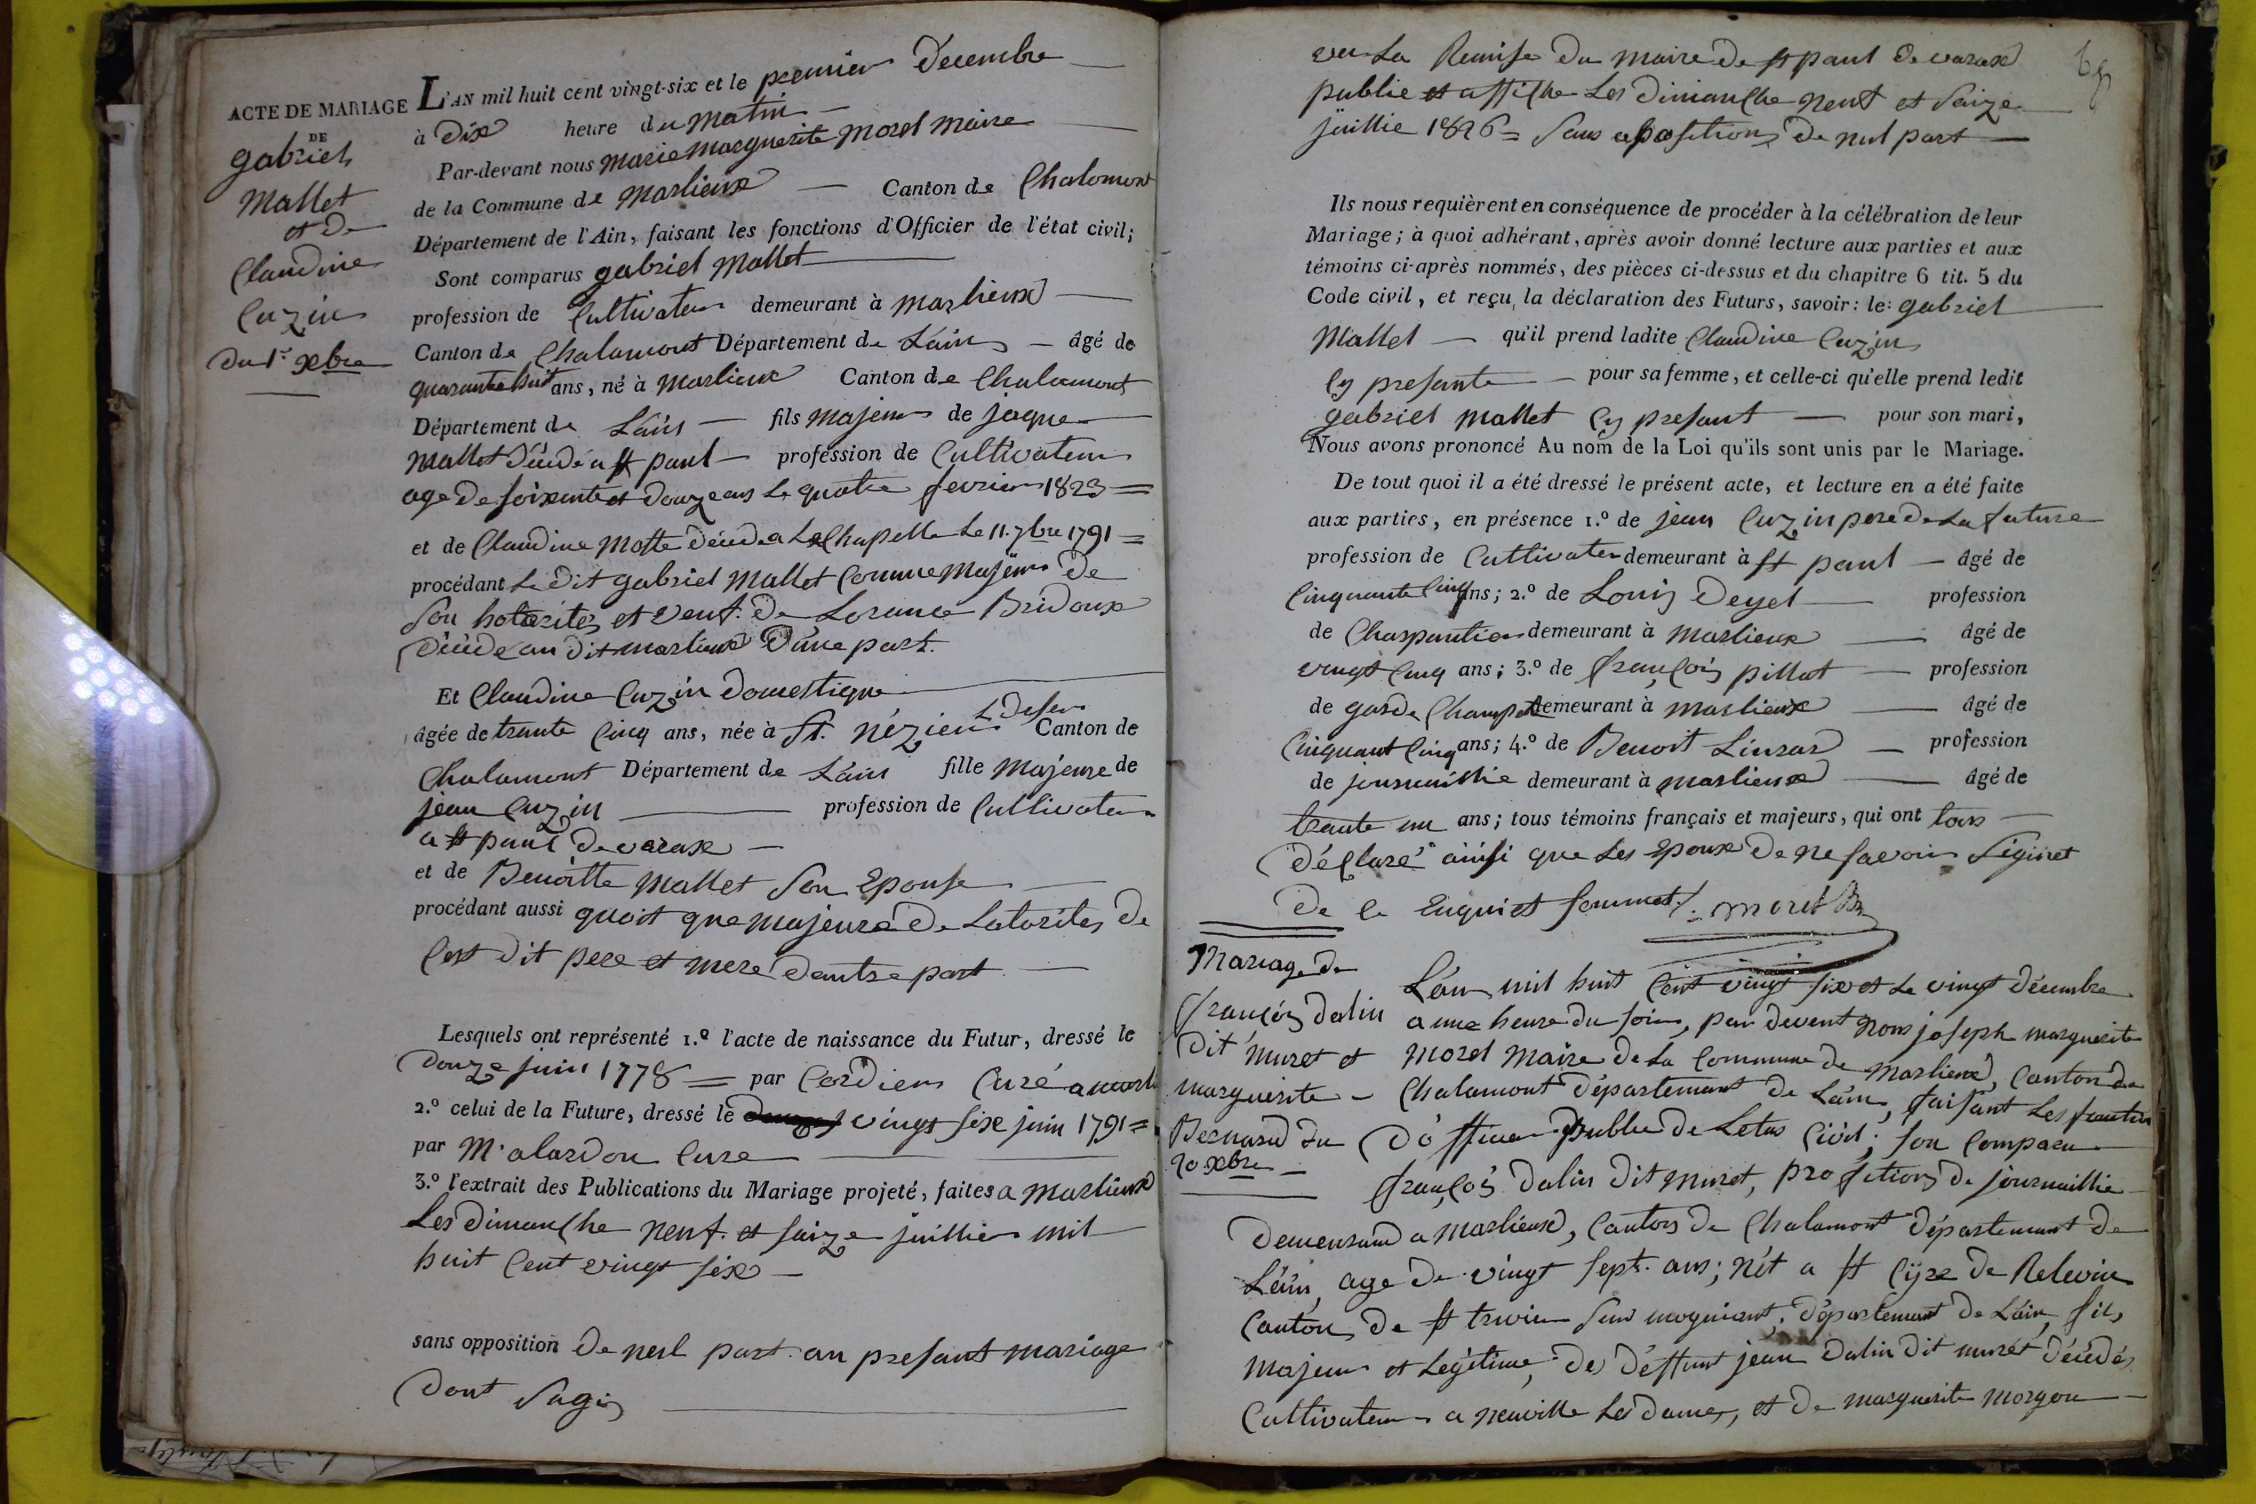 ACTE DE MARIAGE
DE
gabriel
Mallet
et De
Claudine
Cuzin
Du 1er xbre
L'AN mil huit cent vingt-six et le premier Décembre
à Dix heure du matin
Par-devant nous marie marguerite morel maire
de la Commune de marlieux Canton de Chalomont
Département de l'Ain, faisant les fonctions d'Officier de l'état civil;
Sont comparus gabriel mallet
profession de Cultivateur demeurant à marlieux
Canton de Chalamont Département de Láin âgé de
quarante huit ans, né à marlieux Canton de Chalamont
Département de Láin fils majeur de jaque
mallet décédé a st paul profession de Cultivateur
age de soixente et douze ans Le quatre fevrier 1823 =
et de Claudine motte décédé a La Chapelle Le 11. 7bre 1791 =
procédant Le dit gabriel mallet Comme majeur De
Son hotorités et veuf. de Lorance Bridoux
Décédé au Dit marlieux D'une part.
Et Claudine Cuzin Domestique
âgée de trante Cinq ans, née à St. nézier L Deser Canton de
Chalamont Département de Láin fille majeure de
jean Cuzin profession de Cultivateur
a st paul De varax
et de Benoitte mallet Son Epouse
procédant aussi quoit que majeure De Latorites De
Cest Dit pere et mere Dautre part
Lesquels ont représenté 1.º l'acte de naissance du Futur, dressé le
Douze juin 1778 = par Cordier Curé a marli
2.º celui de la Future, dressé le vingt six juin 1791 =
par Mr alardon Cure
3.º l'extrait des Publications du Mariage projeté, faites a marlieux
Les Dimanche neuf. et saize juillier mil
huit Cent vingt six
sans opposition De nul part. au presant mariage
Dont Sagis
68
vu La Remise Du maire De st paul De varax
publie et affiche Les Dimanche neuf et saize
juillie 1826 = Sans aposition De nul part
Ils nous requièrent en conséquence de procéder à la célébration de leur
Mariage; à quoi adhérant, après avoir donné lecture aux parties et aux
témoins ci-après nommés, des pièces ci-dessus et du chapitre 6 tit. 5 du
Code civil, et reçu la déclaration des Futurs, savoir: le: gabriel
Mallet qu'il prend ladite Claudine Cuzin
Cy presante pour sa femme, et celle-ci qu'elle prend ledit
gabriel mallet Cy presant pour son mari,
Nous avons prononcé Au nom de la Loi qu'ils sont unis par le Mariage.
De tout quoi il a été dressé le présent acte, et lecture en a été faite
aux parties, en présence 1.º de jean Cuzin pere De La future
profession de Cultivateur demeurant à st paul âgé de
Cinquante Cinq ans; 2.º de Louis Deyel profession
de Charpantier demeurant à marlieux âgé de
vingt Cinq ans; 3.º de françois pillot profession
de garde Champet demeurant à marlieux âgé de
Cinquant Cinq ans; 4.º de Benoit Linrar profession
de journaillie demeurant à marlieux âgé de
trante un ans; tous témoins français et majeurs, qui ont tous
Déclaré ainsi que Les Epoux De ne savoir Siginet
De Ce Enquiet sommet. morel
Mariage De
françois Dalin
Dit muret et
marguerite
Bernard Du
20 xbre
Lán mil huit Cent vingt six et Le vingt Décembre
a une heure Du soir, par Devent nous joseph marguerite
morel maire De La Commune de marlieux, Canton De
Chalamont Département De Láin, faisant Les
D'officier public De Letas Civil; son Comparu
françois Dalin Dit muret, profetion De journaillie
Demeurand a marlieux, Canton De Chalamont Département De
Láin, age De vingt sept. ans; nét a st Cyre De Relevin
Canton De st trivier Sur mogniant, Département De Láin, fils
majeur et Legitime, De Deffunt jean Dalin Dit muret Décédés
Cultivateur a neuville Les Dames, et De marguerite morgon